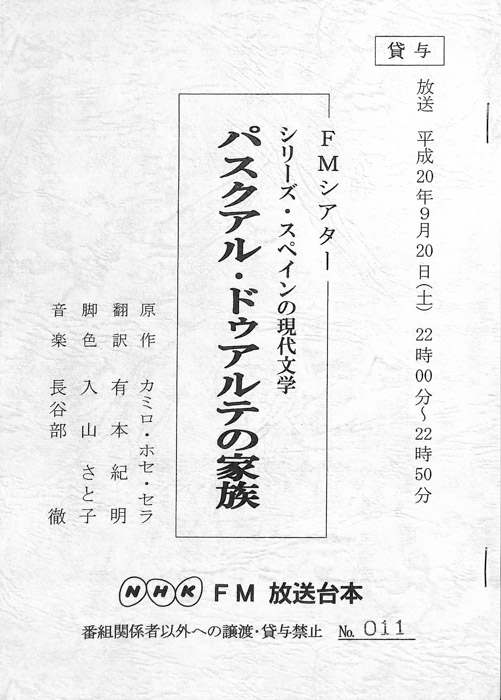 貸与
放送 平成20年9月20日(土) 22時00分〜22時50分
FMシアター
シリーズ・スペインの現代文学
パスクアル・ドゥアルテの家族
原作 カミロ・ホセ・セラ
翻訳 有本紀明
脚色 入山さと子
音楽 長谷部徹
NHK FM 放送台本
番組関係者以外への譲渡・貸与禁止 No. 011